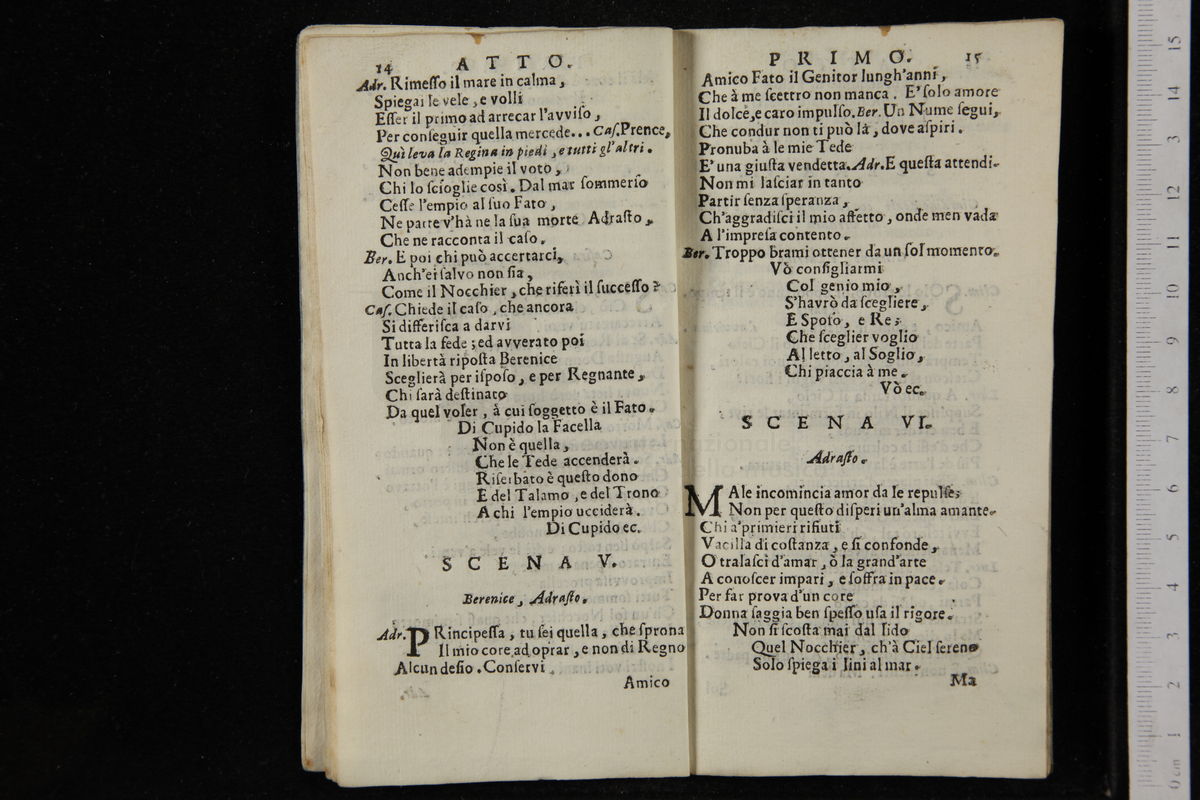 14 ATTO.
Adr. Rimesso il mare in calma,
Spiegai le vele, e volli
Esser il primo ad arrecar l'avviso,
Per conseguir quella mercede... Cas. Prence,
Quì leva la Regina in piedi, e tutti gl'altri.
Non bene adempie il voto,
Chi lo scioglie così. Dal mar sommerso
Cesse l'empio al suo Fato,
Ne parte v'hà ne la sua morte Adrasto,
Che ne racconta il caso.
Ber. E poi chi può accertarci,
Anch'ei salvo non sia,
Come il Nocchier, che riferì il successo?
Cas. Chiede il caso, che ancora
Si differisca a darvi
Tutta la fede; ed avverato poi
In libertà riposta Berenice
Sceglierà per isposo, e per Regnante,
Chi sarà destinato
Da quel voler, à cui soggetto è il Fato.
Di Cupido la Facella
Non è quella,
Che le Tede accenderà.
Riserbato è questo dono
E del Talamo, e del Trono
A chi l'empio ucciderà.
Di Cupido ec.
SCENA V.
Berenice, Adrasto.
Adr. PRincipessa, tu sei quella, che sprona
Il mio core ad oprar, e non di Regno
Alcun desio. Conservi
Amico
PRIMO. 15
Amico Fato il Genitor lungh'anni,
Che à me scettro non manca. E' solo amore
Il dolce, e caro impulso. Ber. Un Nume segui,
Che condur non ti può là, dove aspiri.
Pronuba à le mie Tede
E' una giusta vendetta. Adr. E questa attendi.
Non mi lasciar in tanto
Partir senza speranza,
Ch'aggradisci il mio affetto, onde men vada
A l'impresa contento.
Ber. Troppo brami ottener da un sol momento.
Vò consigliarmi
Col genio mio,
S'havrò da scegliere,
E Sposo, e Re;
Che sceglier voglio
Al letto, al Soglio,
Chi piaccia à me.
Vò ec.
SCENA VI.
Adrasto.
MAle incomincia amor da le repulse;
Non per questo disperi un'alma amante.
Chi a'primieri rifiuti
Vacilla di costanza, e si confonde,
O tralasci d'amar, ò la grand'arte
A conoscer impari, e soffra in pace.
Per far prova d'un core
Donna saggia ben spesso usa il rigore.
Non si scosta mai dal lido
Quel Nocchier, ch'à Ciel sereno
Solo spiega i lini al mar.
Ma